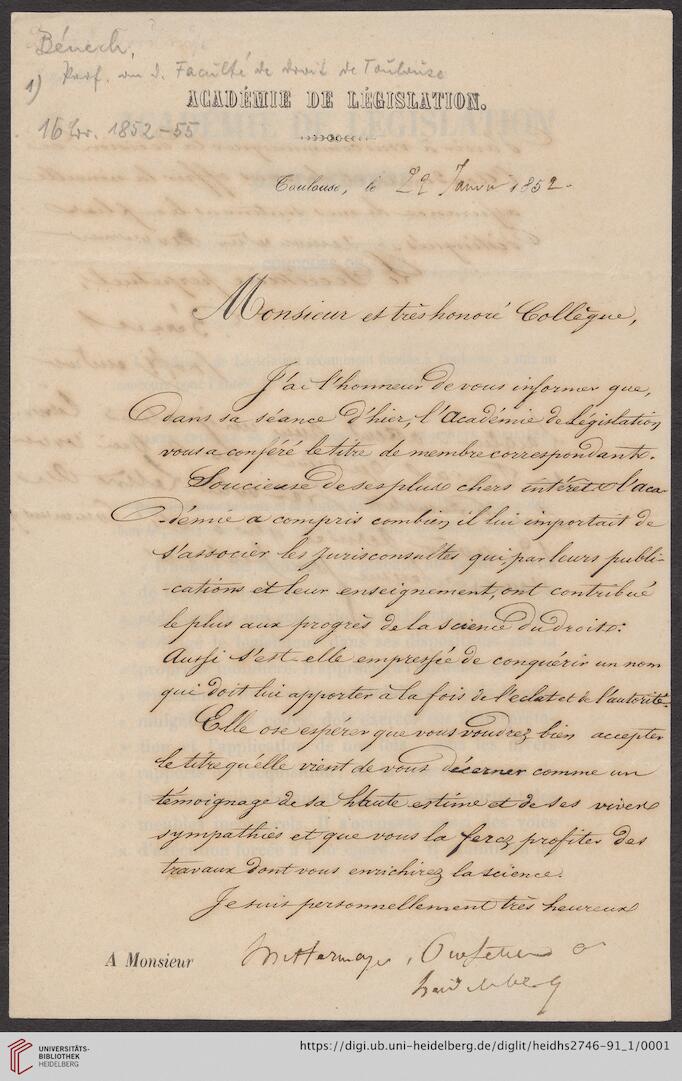 Bénech,
1) Prof. an d. Faculté de droit de Toulouse
16 Br. 1852-55
ACADÉMIE DE LÉGISLATION.
Toulouse, le 29 Janvr 1852.
Monsieur et très honoré Collègue,
J'ai l'honneur de vous informer que,
dans sa séance d'hier, l'Académie de Législation
vous a conféré le titre de membre correspondant.
Soucieuse de ses plus chers intérêts l'aca-
-démie a compris combien il lui importait de
s'associer les Jurisconsultes qui, par leurs publi-
-cations et leur enseignement, ont contribué
le plus aux progrès de la science du droit:
Aussi s'est-elle empressée de conquérir un nom
qui doit lui apporter à la fois de l'eclat et de l'autorité.
Elle ose espérer que vous voudrez bien accepter
le titre qu'elle vient de vous décerner comme un
témoignage de sa haute estime et de ses vives
sympathies et que vous la ferez profiter des
travaux dont vous enrichirez la science.
Je suis personnellement très heureux
A Monsieur Mittermayer, Professeur a
heidelberg
UNIVERSITÄTS-
BIBLIOTHEK
HEIDELBERG
https://digi.ub.uni-heidelberg.de/diglit/heidhs2746-91_1/0001